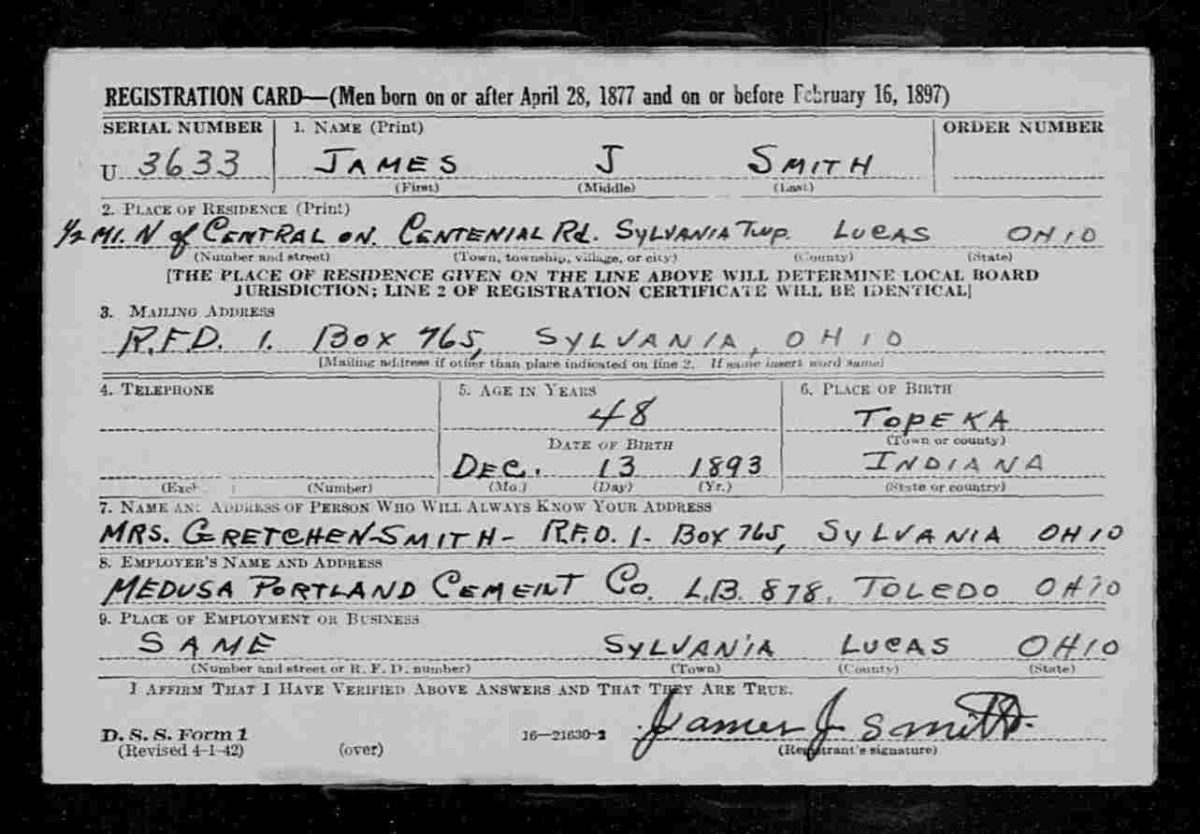 REGISTRATION CARD—(Men born on or after April 28, 1877 and on or before February 16, 1897)
SERIAL NUMBER 1. NAME (Print) ORDER NUMBER
U 3633 JAMES J SMITH
(First) (Middle) (Last)
2. PLACE OF RESIDENCE (Print)
1/2 MI. N of CENTRAL ON. CENTENIAL Rd. SYLVANIA TWP. LUCAS OHIO
(Number and street) (Town, township, village, or city) (County) (State)
[THE PLACE OF RESIDENCE GIVEN ON THE LINE ABOVE WILL DETERMINE LOCAL BOARD
JURISDICTION; LINE 2 OF REGISTRATION CERTIFICATE WILL BE IDENTICAL]
3. MAILING ADDRESS
R.F.D. 1. BOX 765, SYLVANIA, OHIO
[Mailing address if other than place indicated on line 2. If same insert word same]
4. TELEPHONE 5. AGE IN YEARS 6. PLACE OF BIRTH
48 TOPEKA
DATE OF BIRTH (Town or county)
DEC. 13 1893 INDIANA
(Number) (Mo.) (Day) (Yr.) (State or country)
7. NAME AND ADDRESS OF PERSON WHO WILL ALWAYS KNOW YOUR ADDRESS
MRS. GRETCHEN-SMITH- R.F.D. 1- BOX 765, SYLVANIA OHIO
8. EMPLOYER'S NAME AND ADDRESS
MEDUSA PORTLAND CEMENT CO. L.B. 878, TOLEDO OHIO
9. PLACE OF EMPLOYMENT OR BUSINESS
SAME SYLVANIA LUCAS OHIO
(Number and street or R. F. D. number) (Town) (County) (State)
I AFFIRM THAT I HAVE VERIFIED ABOVE ANSWERS AND THAT THEY ARE TRUE.
James J Smith.
D. S. S. Form 1 16—21630-2
(Revised 4-1-42) (over) (Registrant's signature)